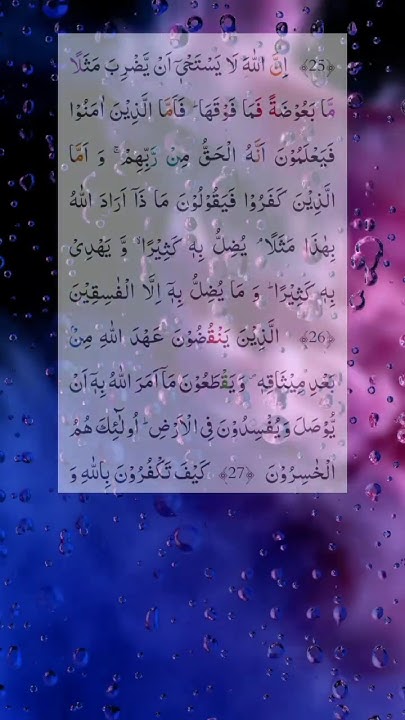 ﴿25﴾ اِنَّ اللّٰهَ لَا يَسْتَحْیٖۤ اَنْ يَّضْرِبَ مَثَلًا
مَّا بَعُوْضَةً فَمَا فَوْقَهَا ؕ فَاَمَّا الَّذِيْنَ اٰمَنُوْا
فَيَعْلَمُوْنَ اَنَّهُ الْحَقُّ مِنْ رَّبِّهِمْ ۚ وَ اَمَّا
الَّذِيْنَ كَفَرُوْا فَيَقُوْلُوْنَ مَا ذَاۤ اَرَادَ اللّٰهُ
بِهٰذَا مَثَلًا ۘ يُضِلُّ بِهٖ كَثِيْرًا ۙ وَّ يَهْدِیْ
بِهٖ كَثِيْرًا ؕ وَ مَا يُضِلُّ بِهٖۤ اِلَّا الْفٰسِقِيْنَ
﴿26﴾ الَّذِيْنَ يَنْقُضُوْنَ عَهْدَ اللّٰهِ مِنْۢ
بَعْدِ مِيْثَاقِهٖ ۪ وَ يَقْطَعُوْنَ مَاۤ اَمَرَ اللّٰهُ بِهٖۤ اَنْ
يُّوْصَلَ وَ يُفْسِدُوْنَ فِی الْاَرْضِ ؕ اُولٰٓئِكَ هُمُ
الْخٰسِرُوْنَ ﴿27﴾ كَيْفَ تَكْفُرُوْنَ بِاللّٰهِ وَ